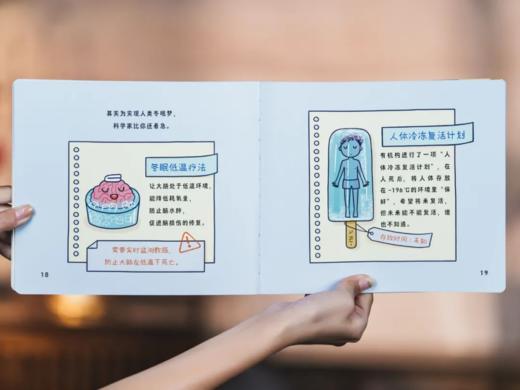 其实为实现人类冬眠梦，
科学家比你还着急。
冬眠低温疗法
让大脑处于低温环境，
能降低耗氧量，
防止脑水肿，
促进脑损伤的修复。
需要实时监测数据，
防止大脑在低温下死亡。
18
人体冷冻复活计划
有机构进行了一项“人
体冷冻复活计划”，在
人死后，将人体存放
在-196℃的环境里“保
鲜”，希望将来复活，
但未来能不能复活，谁
也不知道。
存放时间：未知
19